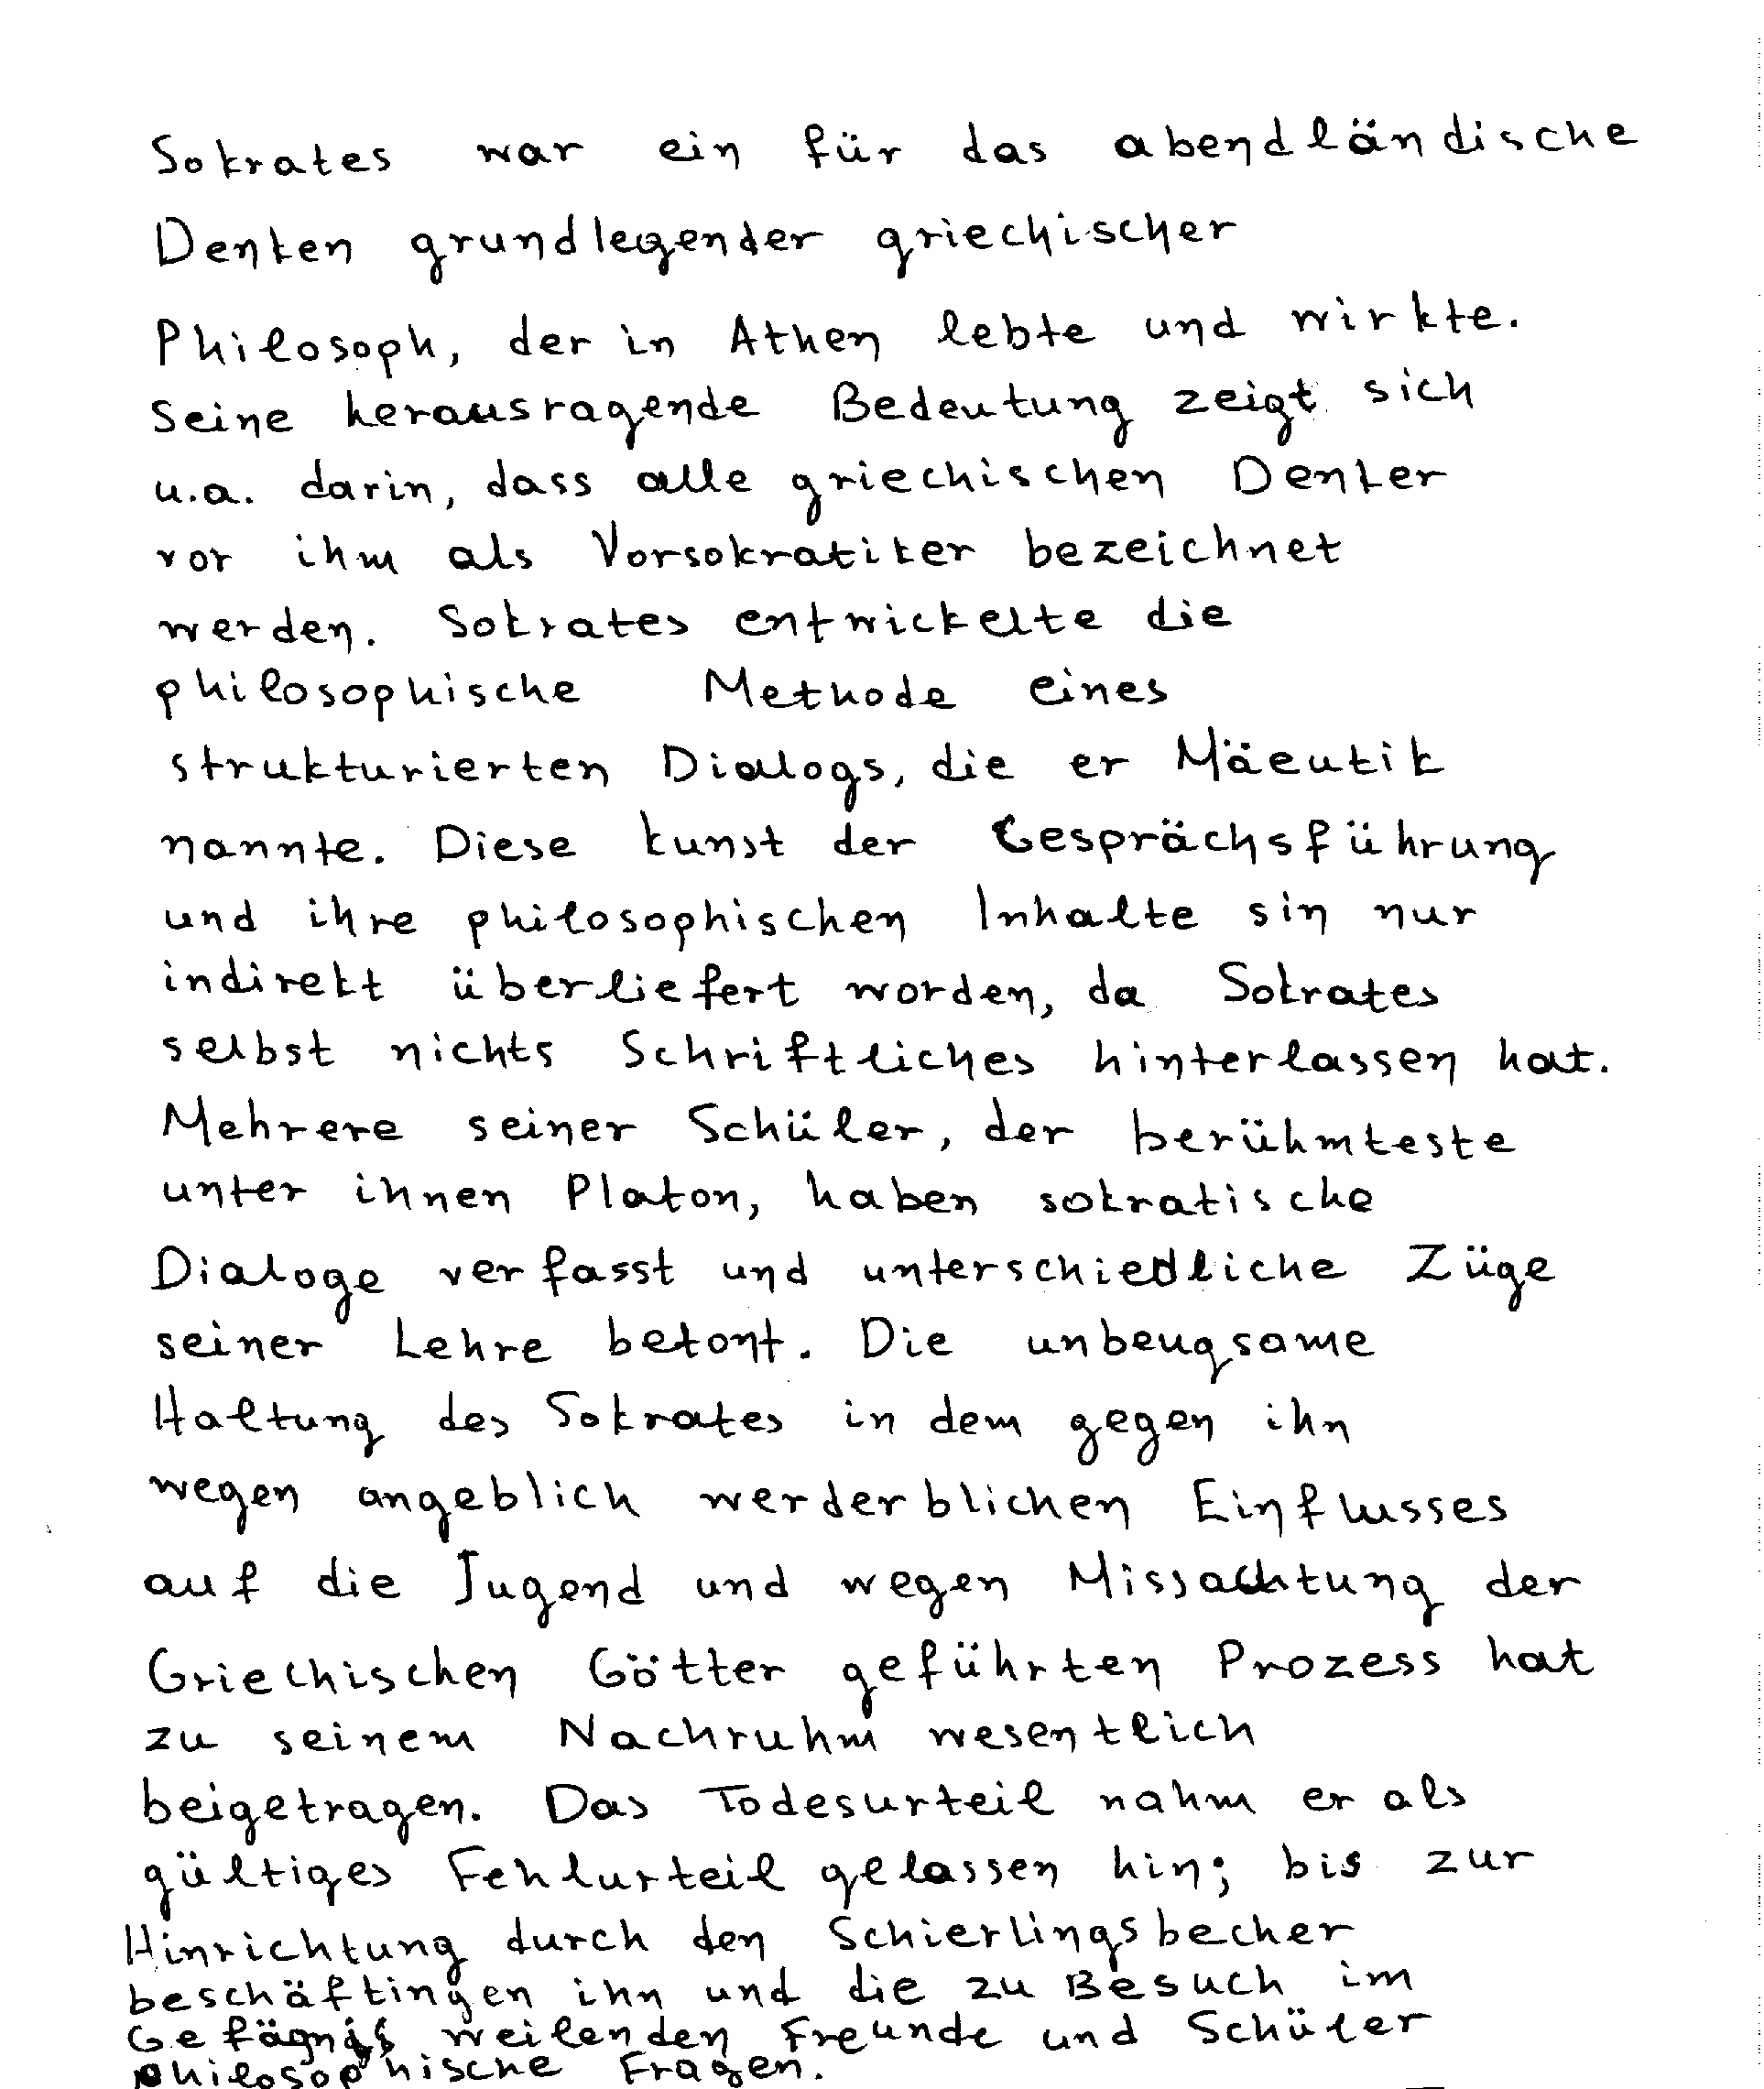 Sokrates war ein für das abendländische
Denken grundlegender griechischer
Philosoph, der in Athen lebte und wirkte.
Seine herausragende Bedeutung zeigt sich
u.a. darin, dass alle griechischen Denker
vor ihm als Vorsokratiker bezeichnet
werden. Sokrates entwickelte die
philosophische Methode eines
strukturierten Dialogs, die er Mäeutik
nannte. Diese kunst der Gesprächsführung
und ihre philosophischen Inhalte sin nur
indirekt überliefert worden, da Sokrates
selbst nichts Schriftliches hinterlassen hat.
Mehrere seiner Schüler, der berühmteste
unter ihnen Platon, haben sokratische
Dialoge verfasst und unterschiedliche Züge
seiner Lehre betont. Die unbeugsame
Haltung des Sokrates in dem gegen ihn
wegen angeblich werderblichen Einflusses
auf die Jugend und wegen Missachtung der
Griechischen Götter geführten Prozess hat
zu seinem Nachruhm wesentlich
beigetragen. Das Todesurteil nahm er als
gültiges Fehlurteil gelassen hin; bis zur
Hinrichtung durch den Schierlingsbecher
beschäftingen ihn und die zu Besuch im
Gefägnis weilenden Freunde und Schüler
philosophische Fragen.